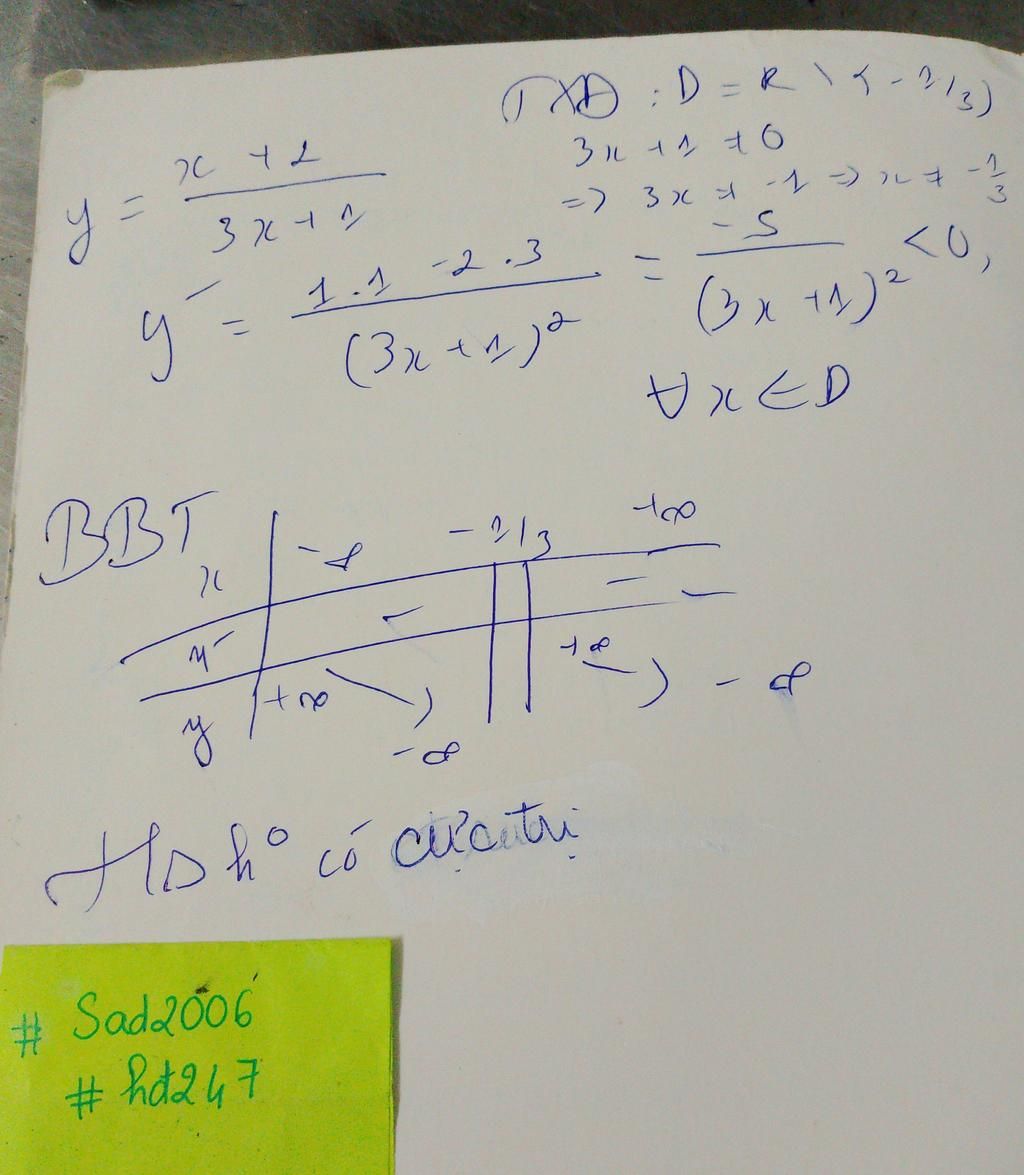 TXĐ : D = R \ { - 1/3 }
3x + 1 ≠ 0
=> 3x ≠ -1 => x ≠ -1/3
y = (x + 2)/(3x + 1)
y' = (1.1 - 2.3)/(3x + 1)² = -5/(3x + 1)² < 0,
∀ x ∈ D
BBT
x -∞ -1/3 +∞
y' - - -
y +∞ -∞ +∞ -∞
HS k° có cực trị
# Sad2006
# hđ247